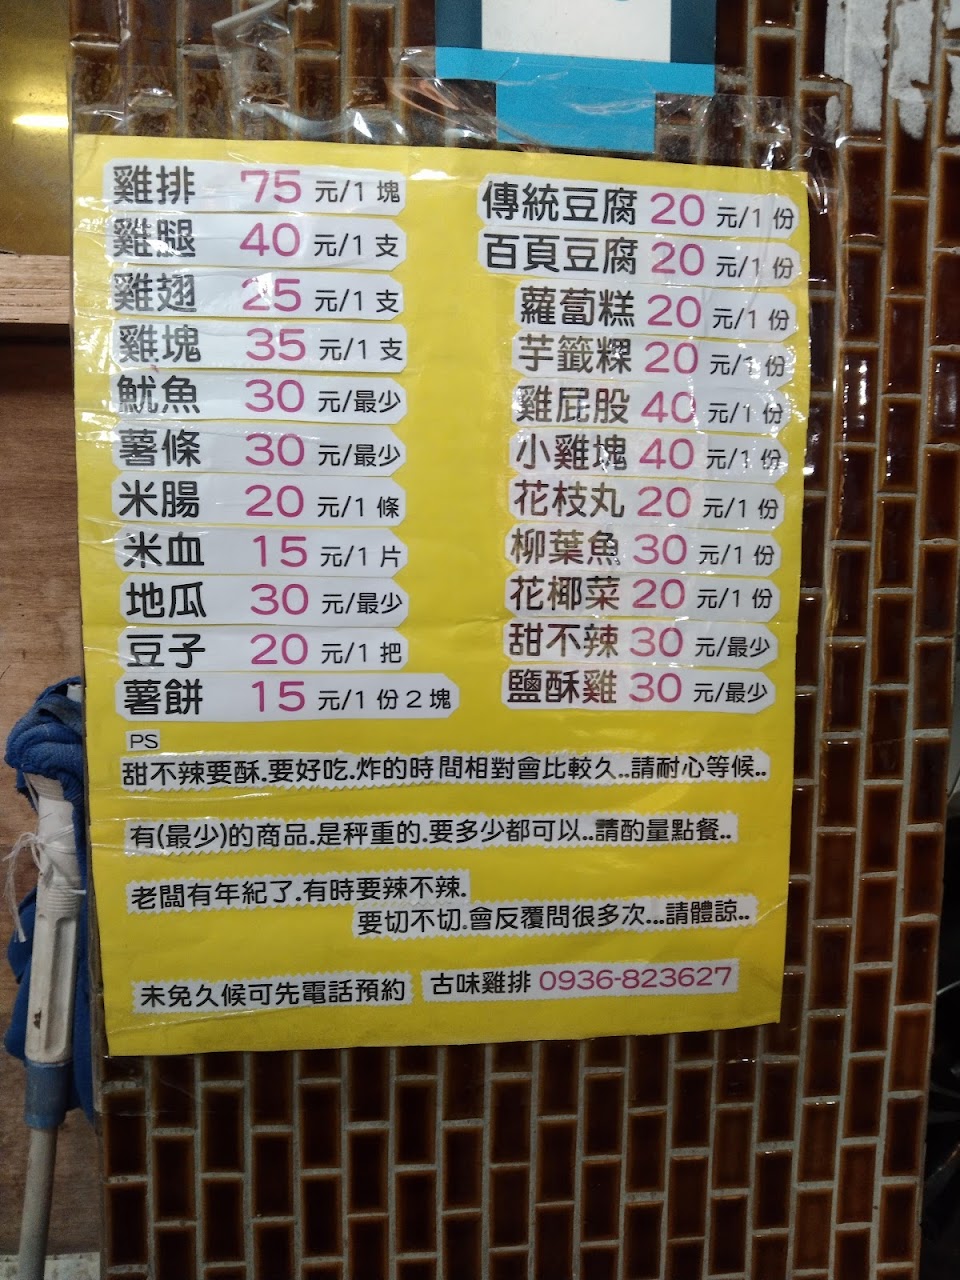 雞排 75 元/1 塊
雞腿 40 元/1 支
雞翅 25 元/1 支
雞塊 35 元/1 支
魷魚 30 元/最少
薯條 30 元/最少
米腸 20 元/1 條
米血 15 元/1 片
地瓜 30 元/最少
豆子 20 元/1 把
薯餅 15 元/1 份 2 塊
傳統豆腐 20 元/1 份
百頁豆腐 20 元/1 份
蘿蔔糕 20 元/1 份
芋籤粿 20 元/1 份
雞屁股 40 元/1 份
小雞塊 40 元/1 份
花枝丸 20 元/1 份
柳葉魚 30 元/1 份
花椰菜 20 元/1 份
甜不辣 30 元/最少
鹽酥雞 30 元/最少
PS
甜不辣要酥.要好吃.炸的時間相對會比較久..請耐心等候..
有(最少)的商品.是秤重的.要多少都可以..請酌量點餐..
老闆有年紀了.有時要辣不辣.
要切不切.會反覆問很多次...請體諒..
未免久候可先電話預約 古味雞排 0936-823627